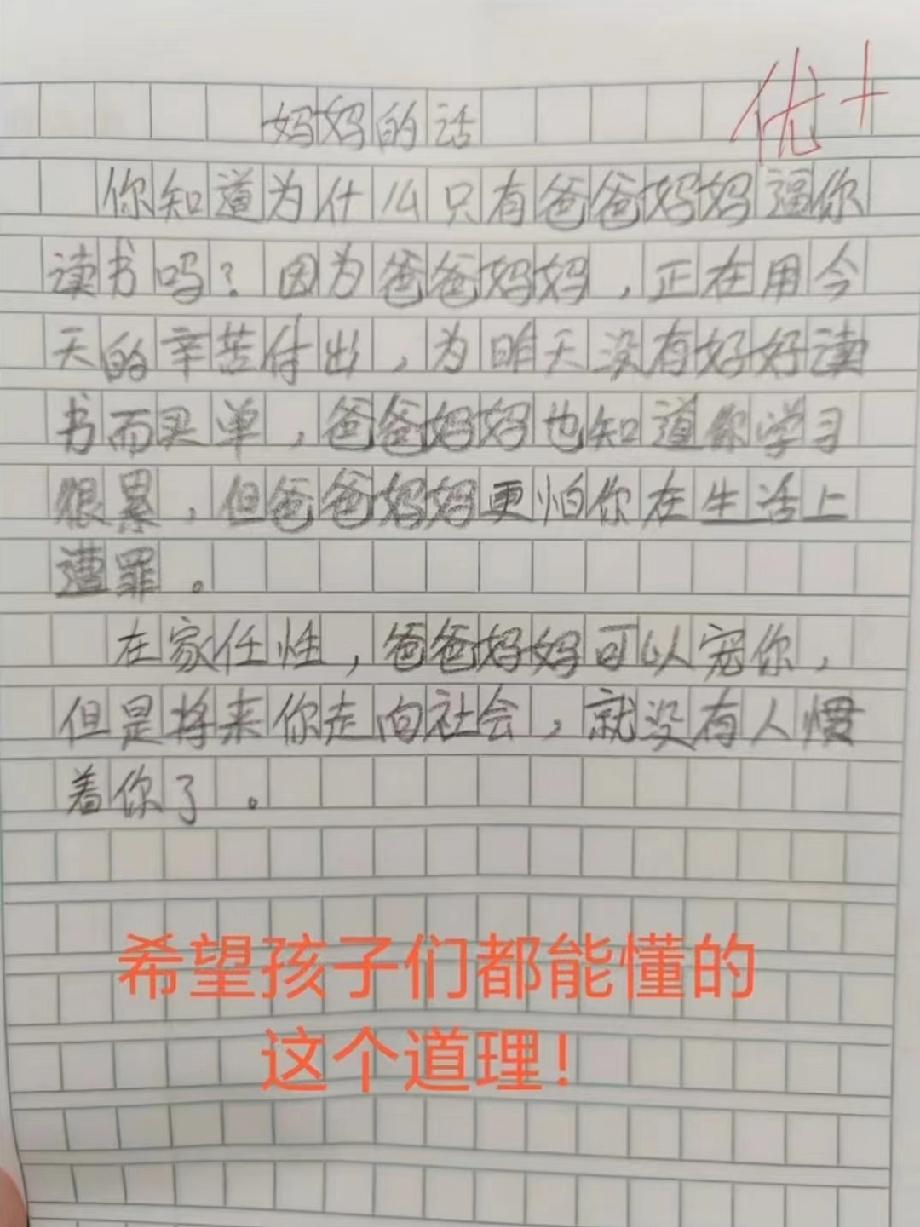 优+
妈妈的话
你知道为什么只有爸爸妈妈逼你
读书吗？因为爸爸妈妈，正在用今
天的辛苦付出，为昨天没有好好读
书而买单，爸爸妈妈也知道你学习
很累，但爸爸妈妈更怕你在生活上
遭罪。
在家任性，爸爸妈妈可以宠你，
但是将来你走向社会，就没有人惯
着你了。
希望孩子们都能懂的
这个道理！